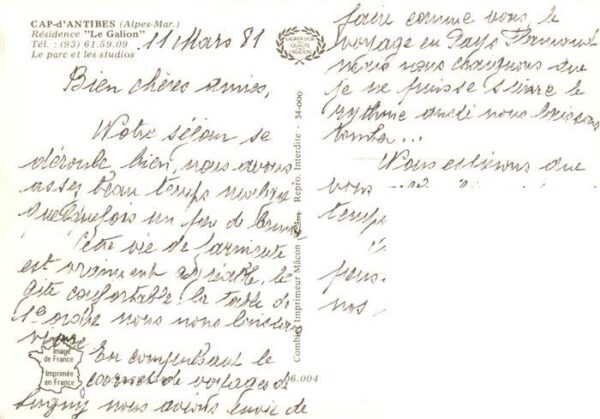 CAP-d'ANTIBES (Alpes-Mar.)
Résidence "Le Galion"
Tél. : (93) 61.59.09
Le parc et les studios
11 Mars 81
Bien chères amies,
Notre séjour se
déroule bien, nous avons
assez beau temps malgré
quelquefois un peu de brume
Cette vie de farniente
est vraiment agréable, le
gîte confortable, la table de
1er ordre nous nous laissons
vivre
En compulsant le
carnet de voyages de
nous avions envie de
faire comme vous, le
voyage en Pays Flamand
mais nous craignons que
je ne puisse suivre le
rythme aussi nous laissons
tomber...
Nous espérons que
vous
temps
pens
nos
SAUREZ D'OR
QUALITE
CREATION
Combier Imprimeur Mâcon
Repro. Interdite - 34-000
6.004
Image
de France
Imprimée
en France